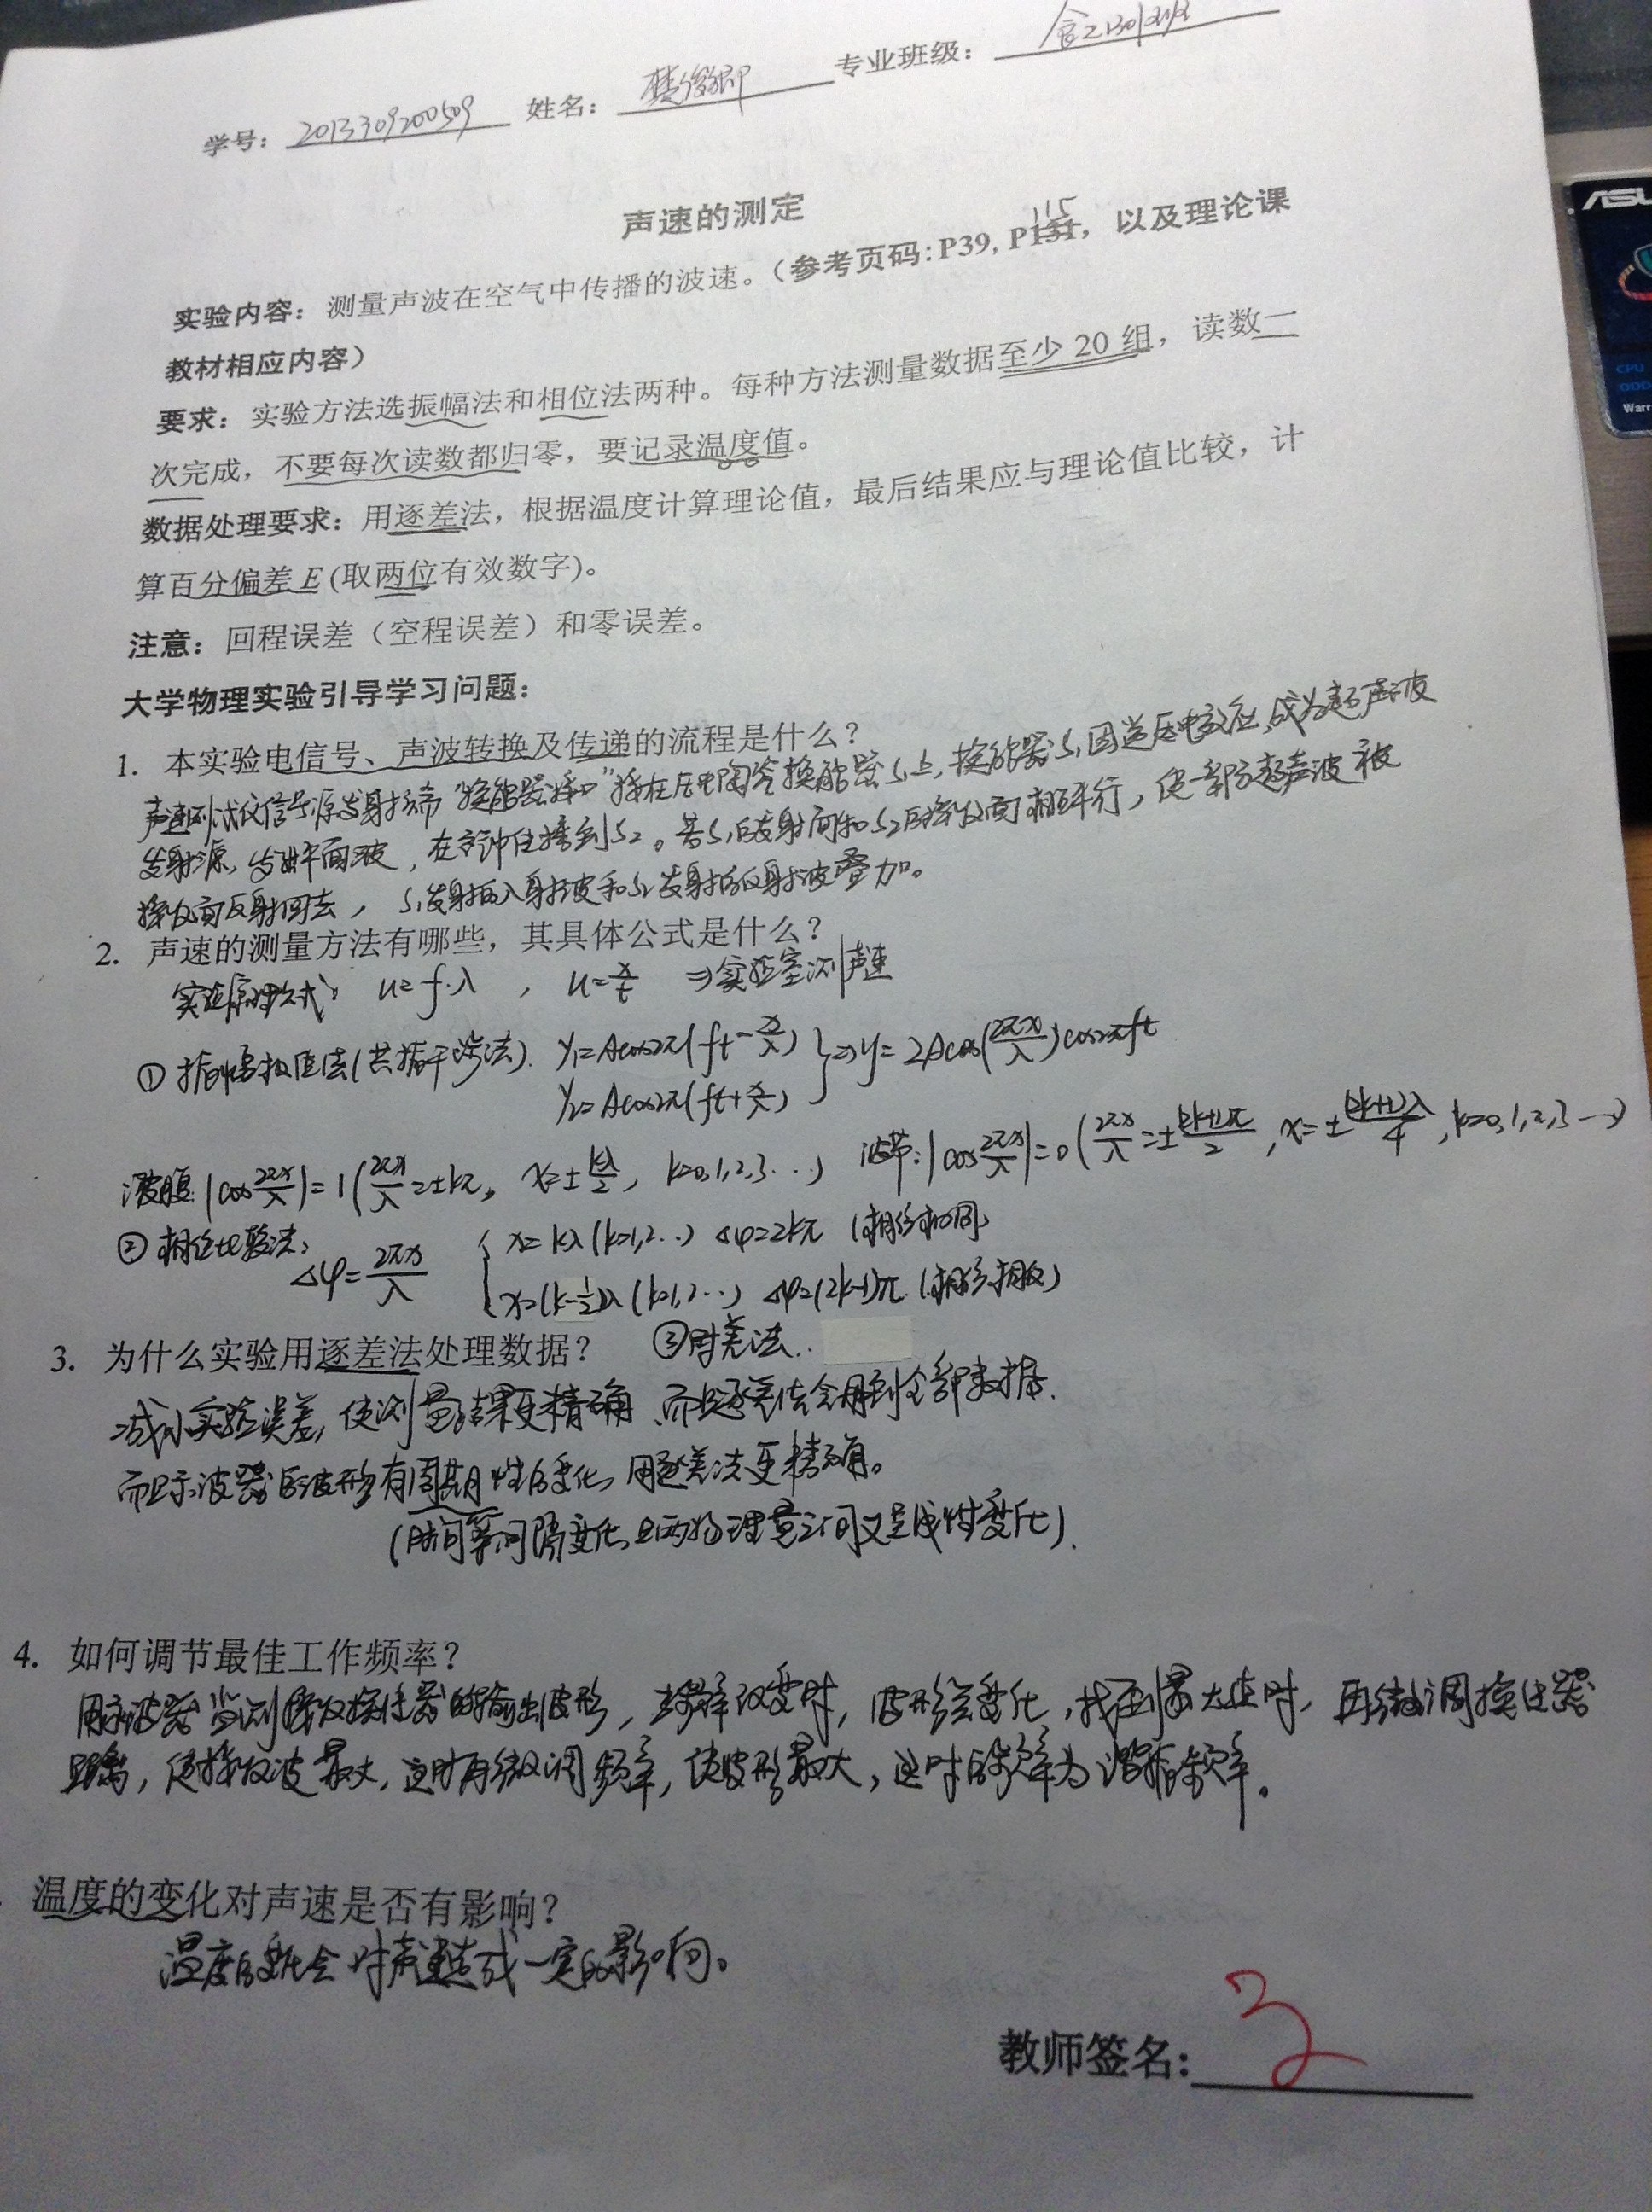 学号：2013309200509 姓名： 专业班级：
声速的测定
实验内容：测量声波在空气中传播的波速。（参考页码：P39，P131 115，以及理论课
教材相应内容）
要求：实验方法选振幅法和相位法两种。每种方法测量数据至少 20 组，读数一
次完成，不要每次读数都归零，要记录温度值。
数据处理要求：用逐差法，根据温度计算理论值，最后结果应与理论值比较，计
算百分偏差 E (取两位有效数字)。
注意：回程误差（空程误差）和零误差。
大学物理实验引导学习问题：
1. 本实验电信号、声波转换及传递的流程是什么？
声速测试仪信号源发射端“换能器接口”接在压电陶瓷换能器S₁上，换能器S₁因逆压电效应，成为超声波
发射源，发出平面波，在空气中传播到S₂。若S₁的发射面和S₂的接收面相互平行，使部分超声波被
接收面反射回去，S₁发射的入射波和S₂发射的反射波叠加。
2. 声速的测量方法有哪些，其具体公式是什么？
实验原理公式： u=f·λ ， u=x/t ⇒实验室测声速
① 振幅极值法(共振干涉法). y₁=Acos2π(ft-x/λ) }⇒y=2Acos(2πx/λ)cos2πft
y₂=Acos2π(ft+x/λ)
波腹:|cos2πx/λ|=1(2πx/λ=±kπ, x=±kλ/2, k=0,1,2,3…) 波节:|cos2πx/λ|=0(2πx/λ=±(2k+1)π/2, x=±(2k+1)λ/4, k=0,1,2,3…)
② 相位比较法: Δφ=2πx/λ { x=kλ(k=1,2…) Δφ=2kπ (相位相同)
x=(k-1/2)λ(k=1,2…) Δφ=(2k-1)π (相位相反)
3. 为什么实验用逐差法处理数据？ ③时差法.
减小实验误差，使测量结果更精确、而且逐差法会用到全部数据.
而且示波器的波形有周期性的变化，用逐差法更精确。
(时间等间隔变化，且两物理量之间又呈线性变化).
4. 如何调节最佳工作频率？
用示波器监测接收换能器的输出波形，频率改变时，波形会变化，找到最大值时，再微调换能器
距离，使接收波最大，这时再微调频率，使波形最大，这时的频率为谐振频率。
温度的变化对声速是否有影响？
温度的变化会对声速造成一定的影响。
教师签名：
ASU
CPU
Warr